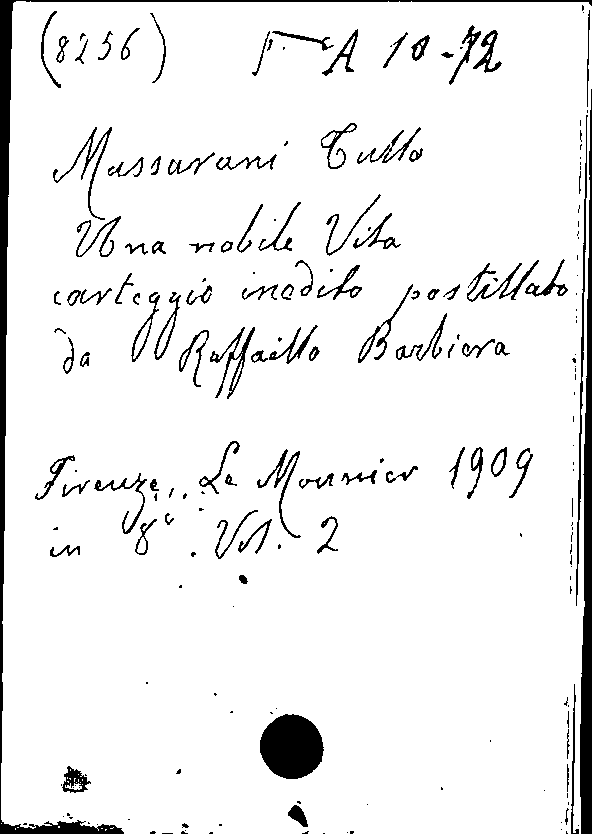 (8256) A 10-72
Massarani Tullo
Una nobile Vita
carteggio inedito postillato
da Raffaello Barbiera
Firenze, Le Monnier 1909
in 8° . Vol. 2